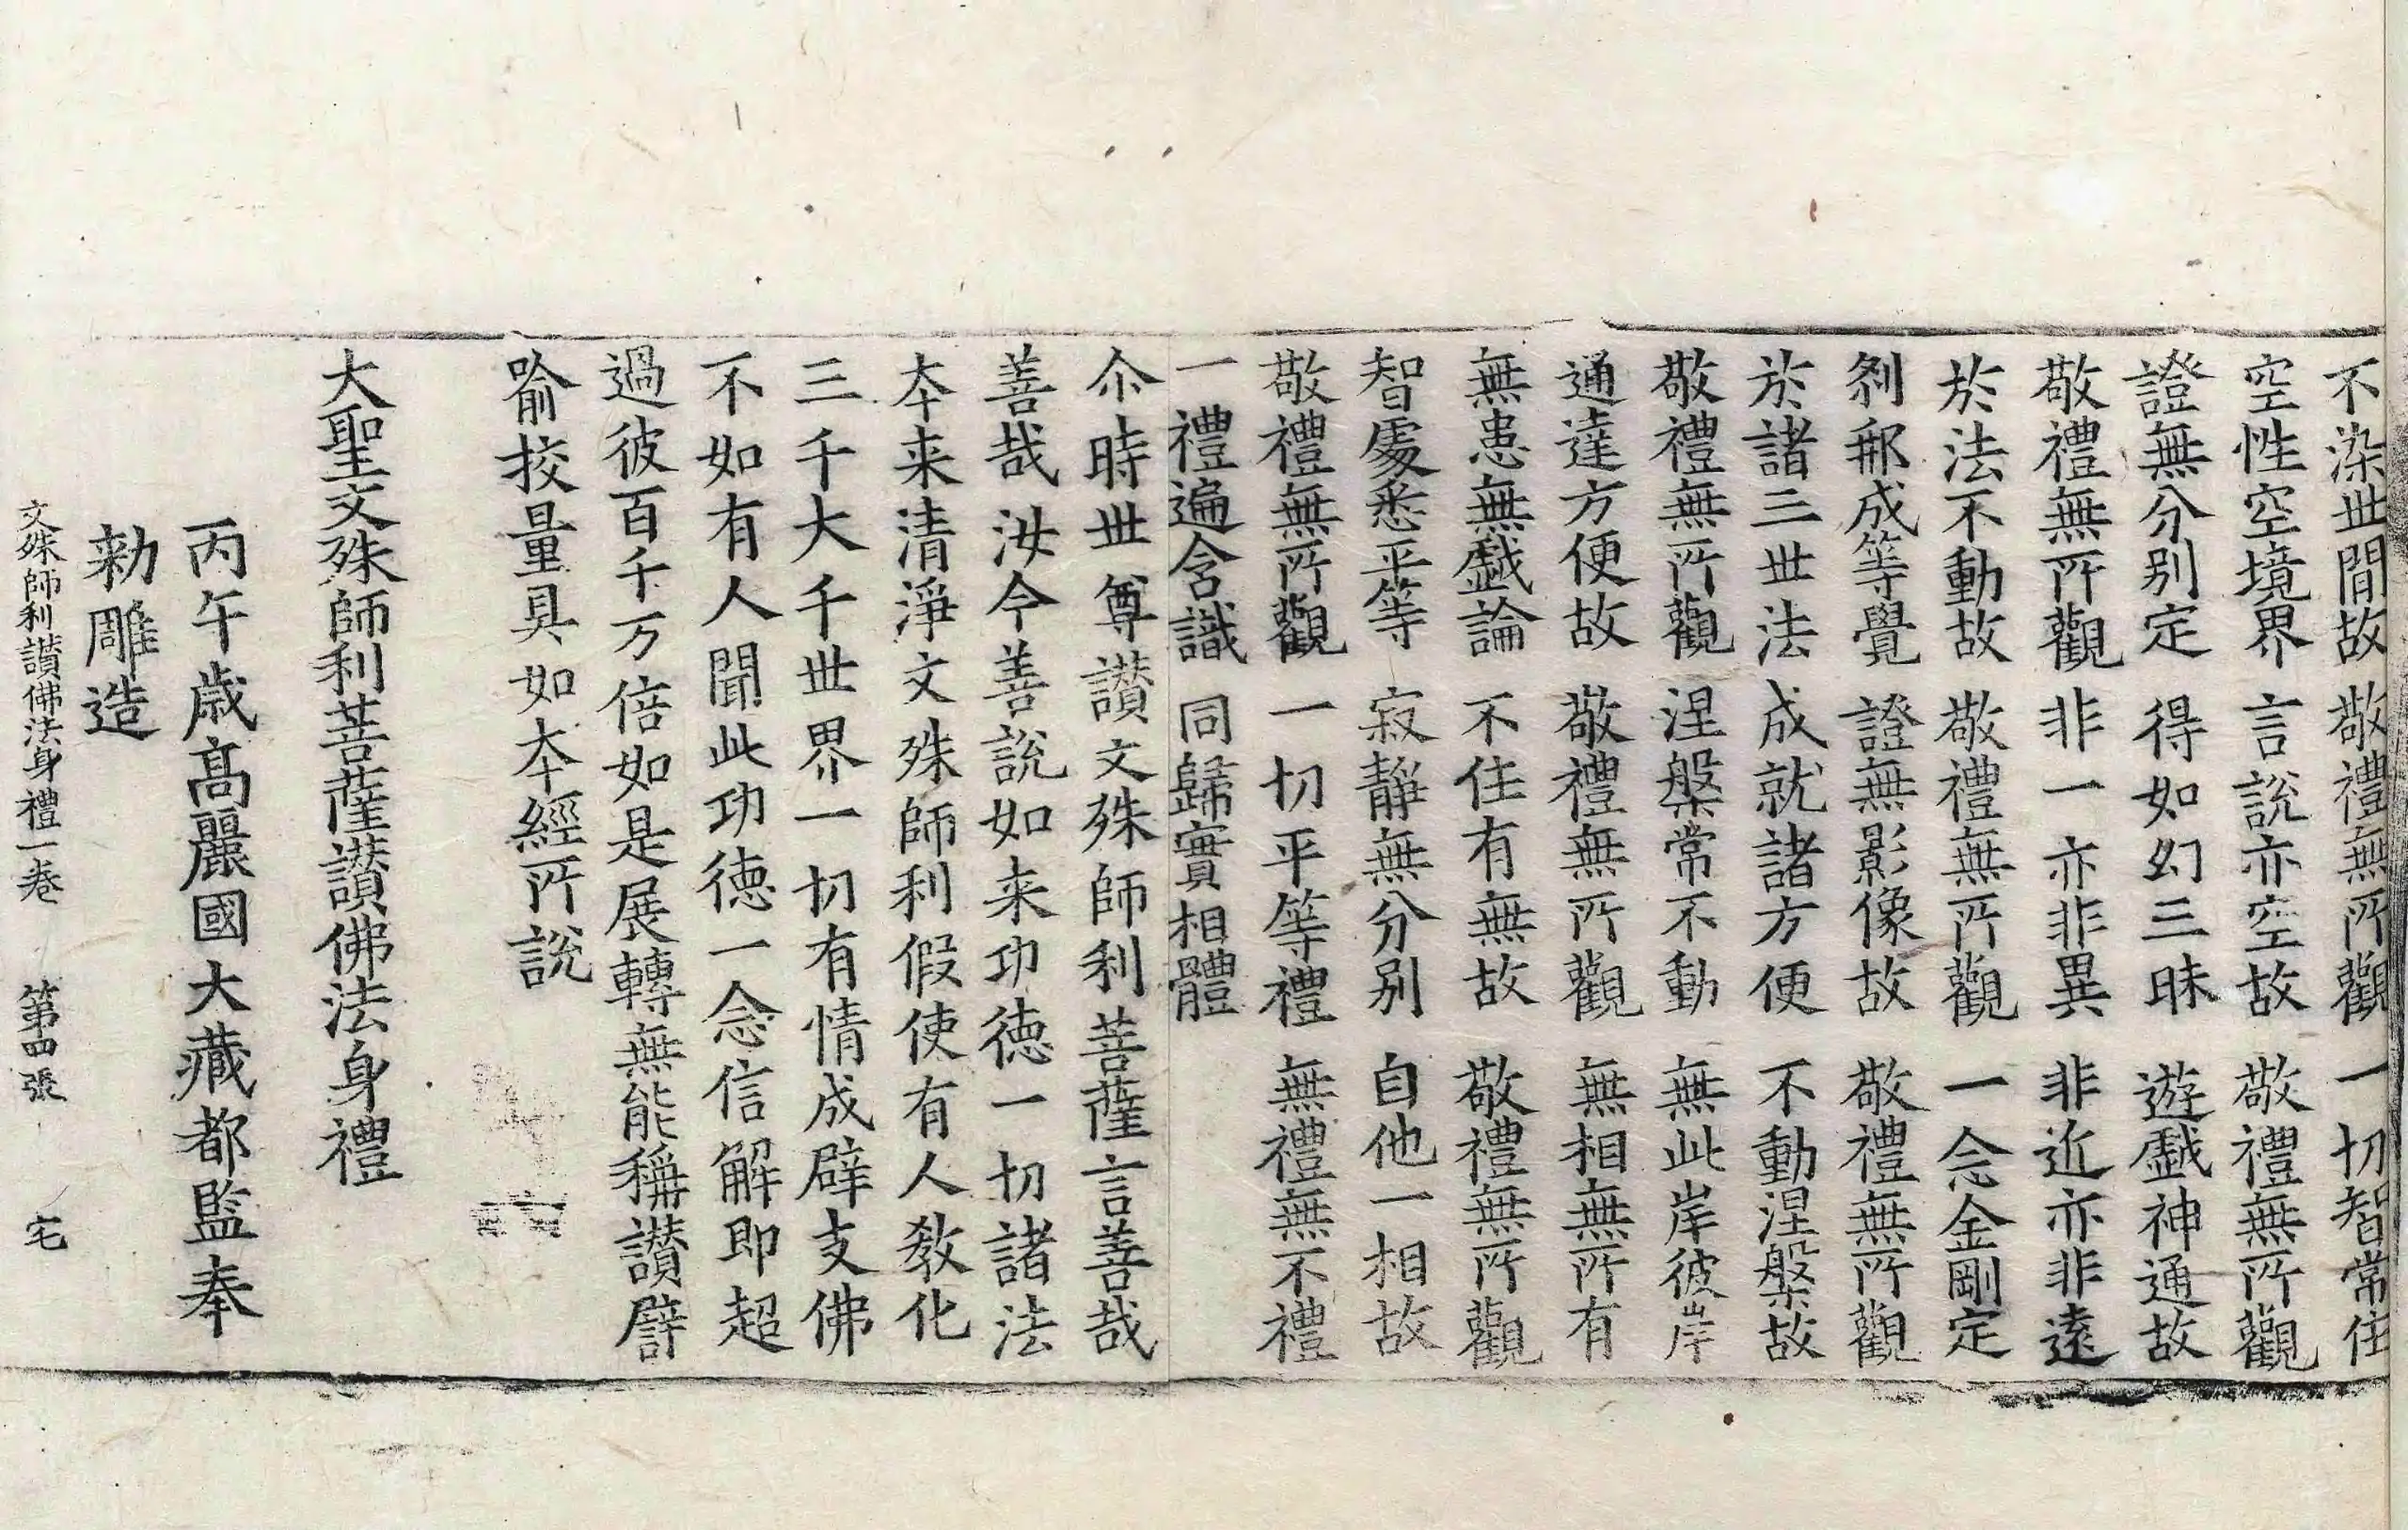 不染世間故 敬禮無所觀 一切智常住
空性空境界 言說亦空故 敬禮無所觀
證無分別定 得如幻三昧 遊戱神通故
敬禮無所觀 非一亦非異 非近亦非遠
於法不動故 敬禮無所觀 一念金剛定
刹那成等覺 證無影像故 敬禮無所觀
於諸三世法 成就諸方便 不動涅槃故
敬禮無所觀 涅槃常不動 無此岸彼岸
通達方便故 敬禮無所觀 無相無所有
無患無戱論 不住有無故 敬禮無所觀
智處悉平等 寂靜無分別 自他一相故
敬禮無所觀 一切平等禮 無禮無不禮
一禮遍含識 同歸實相體
尒時世尊讃文殊師利菩薩言善哉
善哉汝今善說如来功德一切諸法
本来清淨文殊師利假使有人教化
三千大千世界一切有情成辟支佛
不如有人聞此功德一念信解即超
過彼百千万倍如是展轉無能稱讃譬
喻挍量具如本經所說
大聖文殊師利菩薩讃佛法身禮
丙午歲髙麗國大藏都監奉
勑雕造
文殊師利讃佛法身禮一卷 第四張 宅